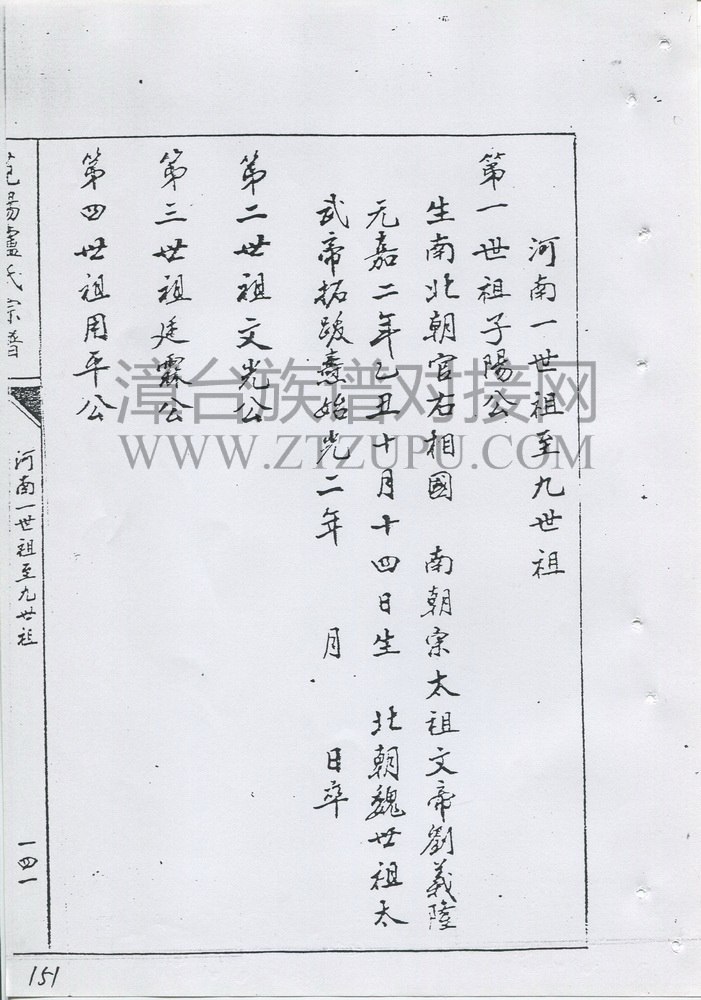 河南一世祖至九世祖
第一世祖子陽公
生南北朝官右相國 南朝宋太祖文帝劉義隆
元嘉二年乙丑十月十四日生 北朝魏世祖太
武帝拓跋燾始光二年 月 日卒
第二世祖文光公
第三世祖廷霖公
第四世祖用平公
范陽盧氏宗譜
河南一世祖至九世祖
一四一
151
漳台族谱对接网
WWW.ZTZUPU.COM